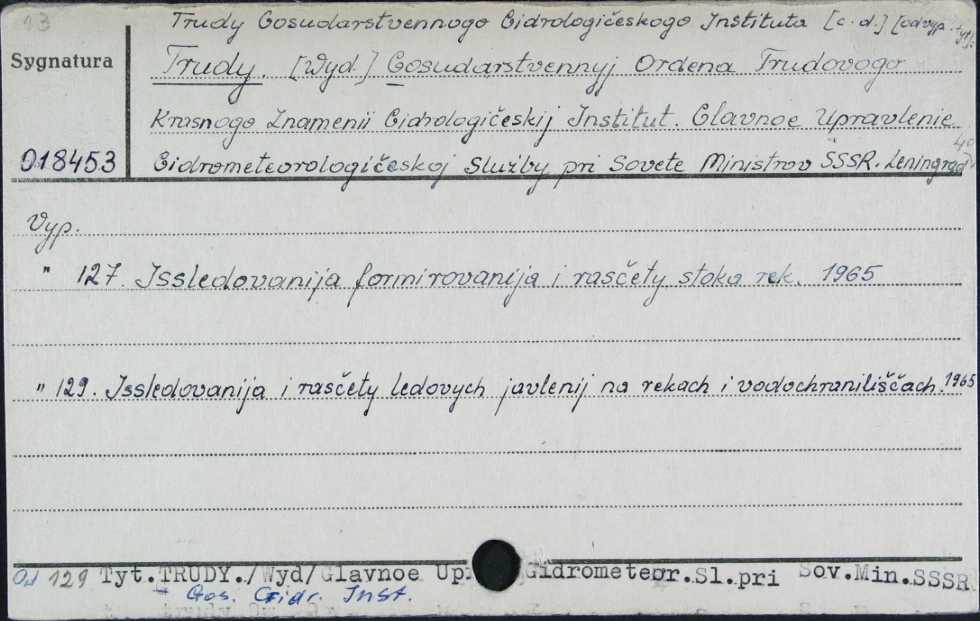 13
Trudy Gosudarstvennogo Gidrologičeskogo Instituta [c.d.] [od vyp.
Sygnatura
Trudy. [Wyd.] Gosudarstvennyj Ordena Trudovogo
Krasnogo Znamenii Gidrologičeskij Institut. Glavnoe Upravlenie
018453
Gidrometeorologičeskoj Služby pri Sovete Ministrov SSSR. Leningrad 4°
Vyp.
" 127. Issledovanija formirovanija i rasčety stoka rek. 1965
" 129. Issledovanija i rasčety ledovych javlenij na rekach i vodochraniliščach. 1965
Od 129 Tyt. TRUDY./Wyd/Glavnoe Upr Gidrometeor.Sl.pri Sov.Min.SSSR
Gos. Gidr. Inst.